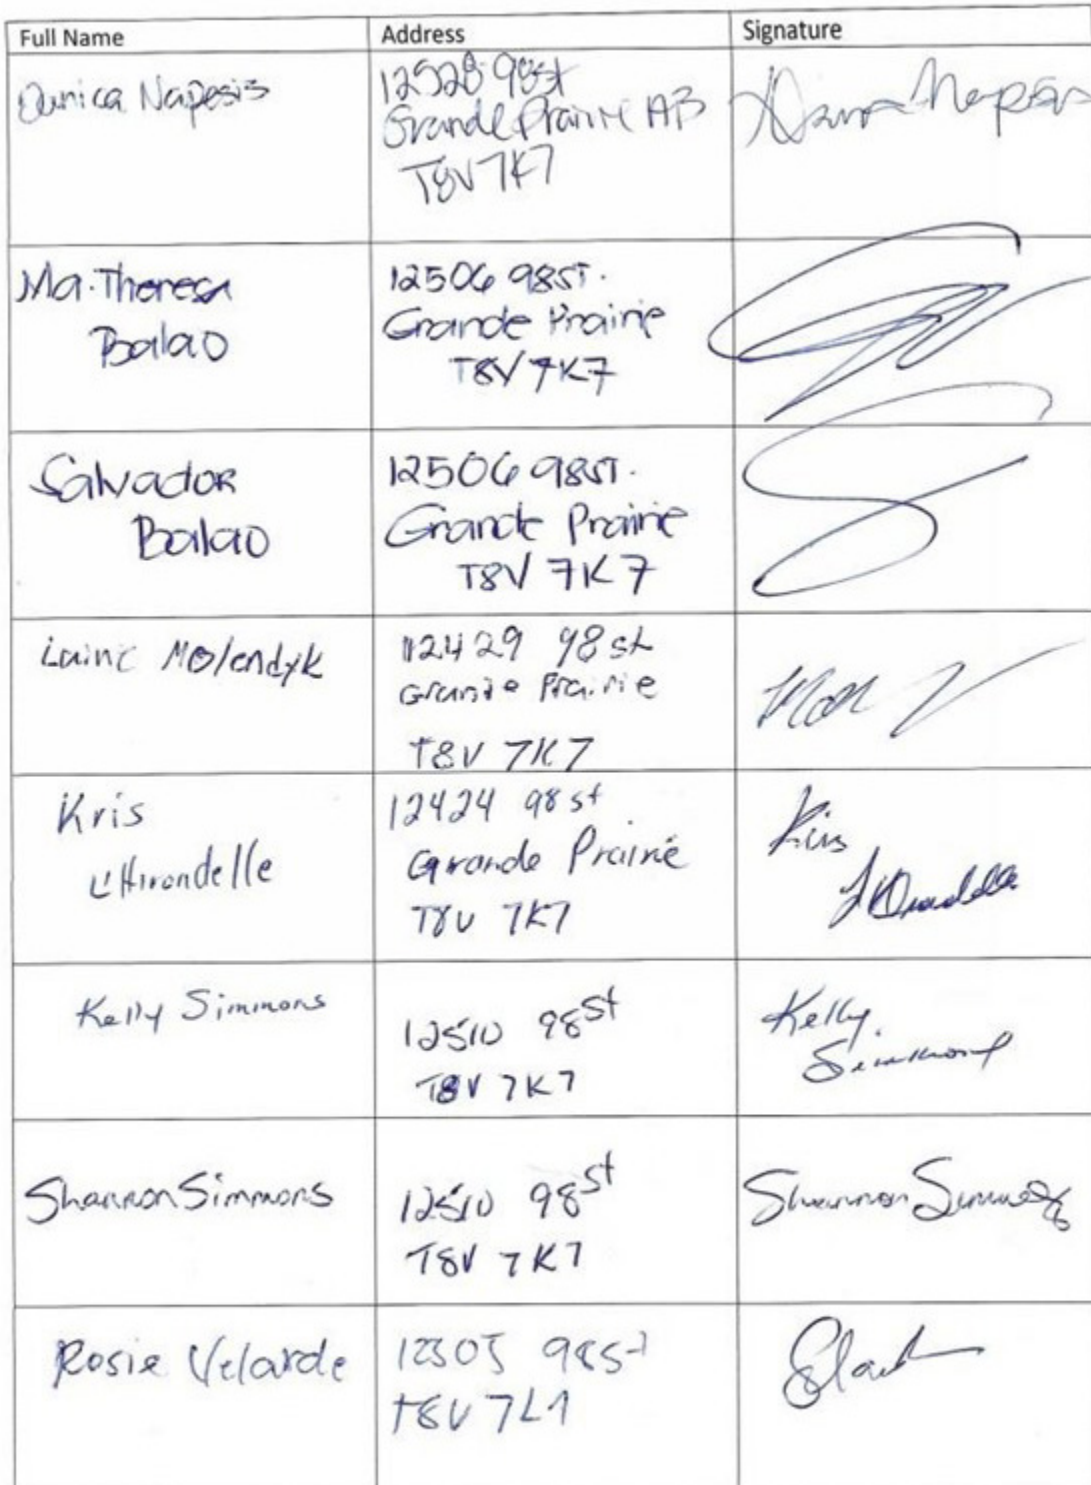 Full Name Address Signature
Danica Napesis
12528 98st
Grande Prairie AB
T8V 7K7
Ma. Theresa
Balao
12506 98ST.
Grande Prairie
T8V 7K7
Salvador
Balao
12506 98ST.
Grande Prairie
T8V 7K7
Laine Molendyk
12429 98 st
Grande Prairie
T8V 7K7
Kris
L'Hirondelle
12424 98 st
Grande Prairie
T8V 7K7
Kris
L'Hirondelle
Kelly Simmons
12510 98St
T8V 7K7
Kelly
Simmons
Shannon Simmons
12510 98St
T8V 7K7
Shannon Simmons
Rosie Velarde
12505 98St
T8V 7L1